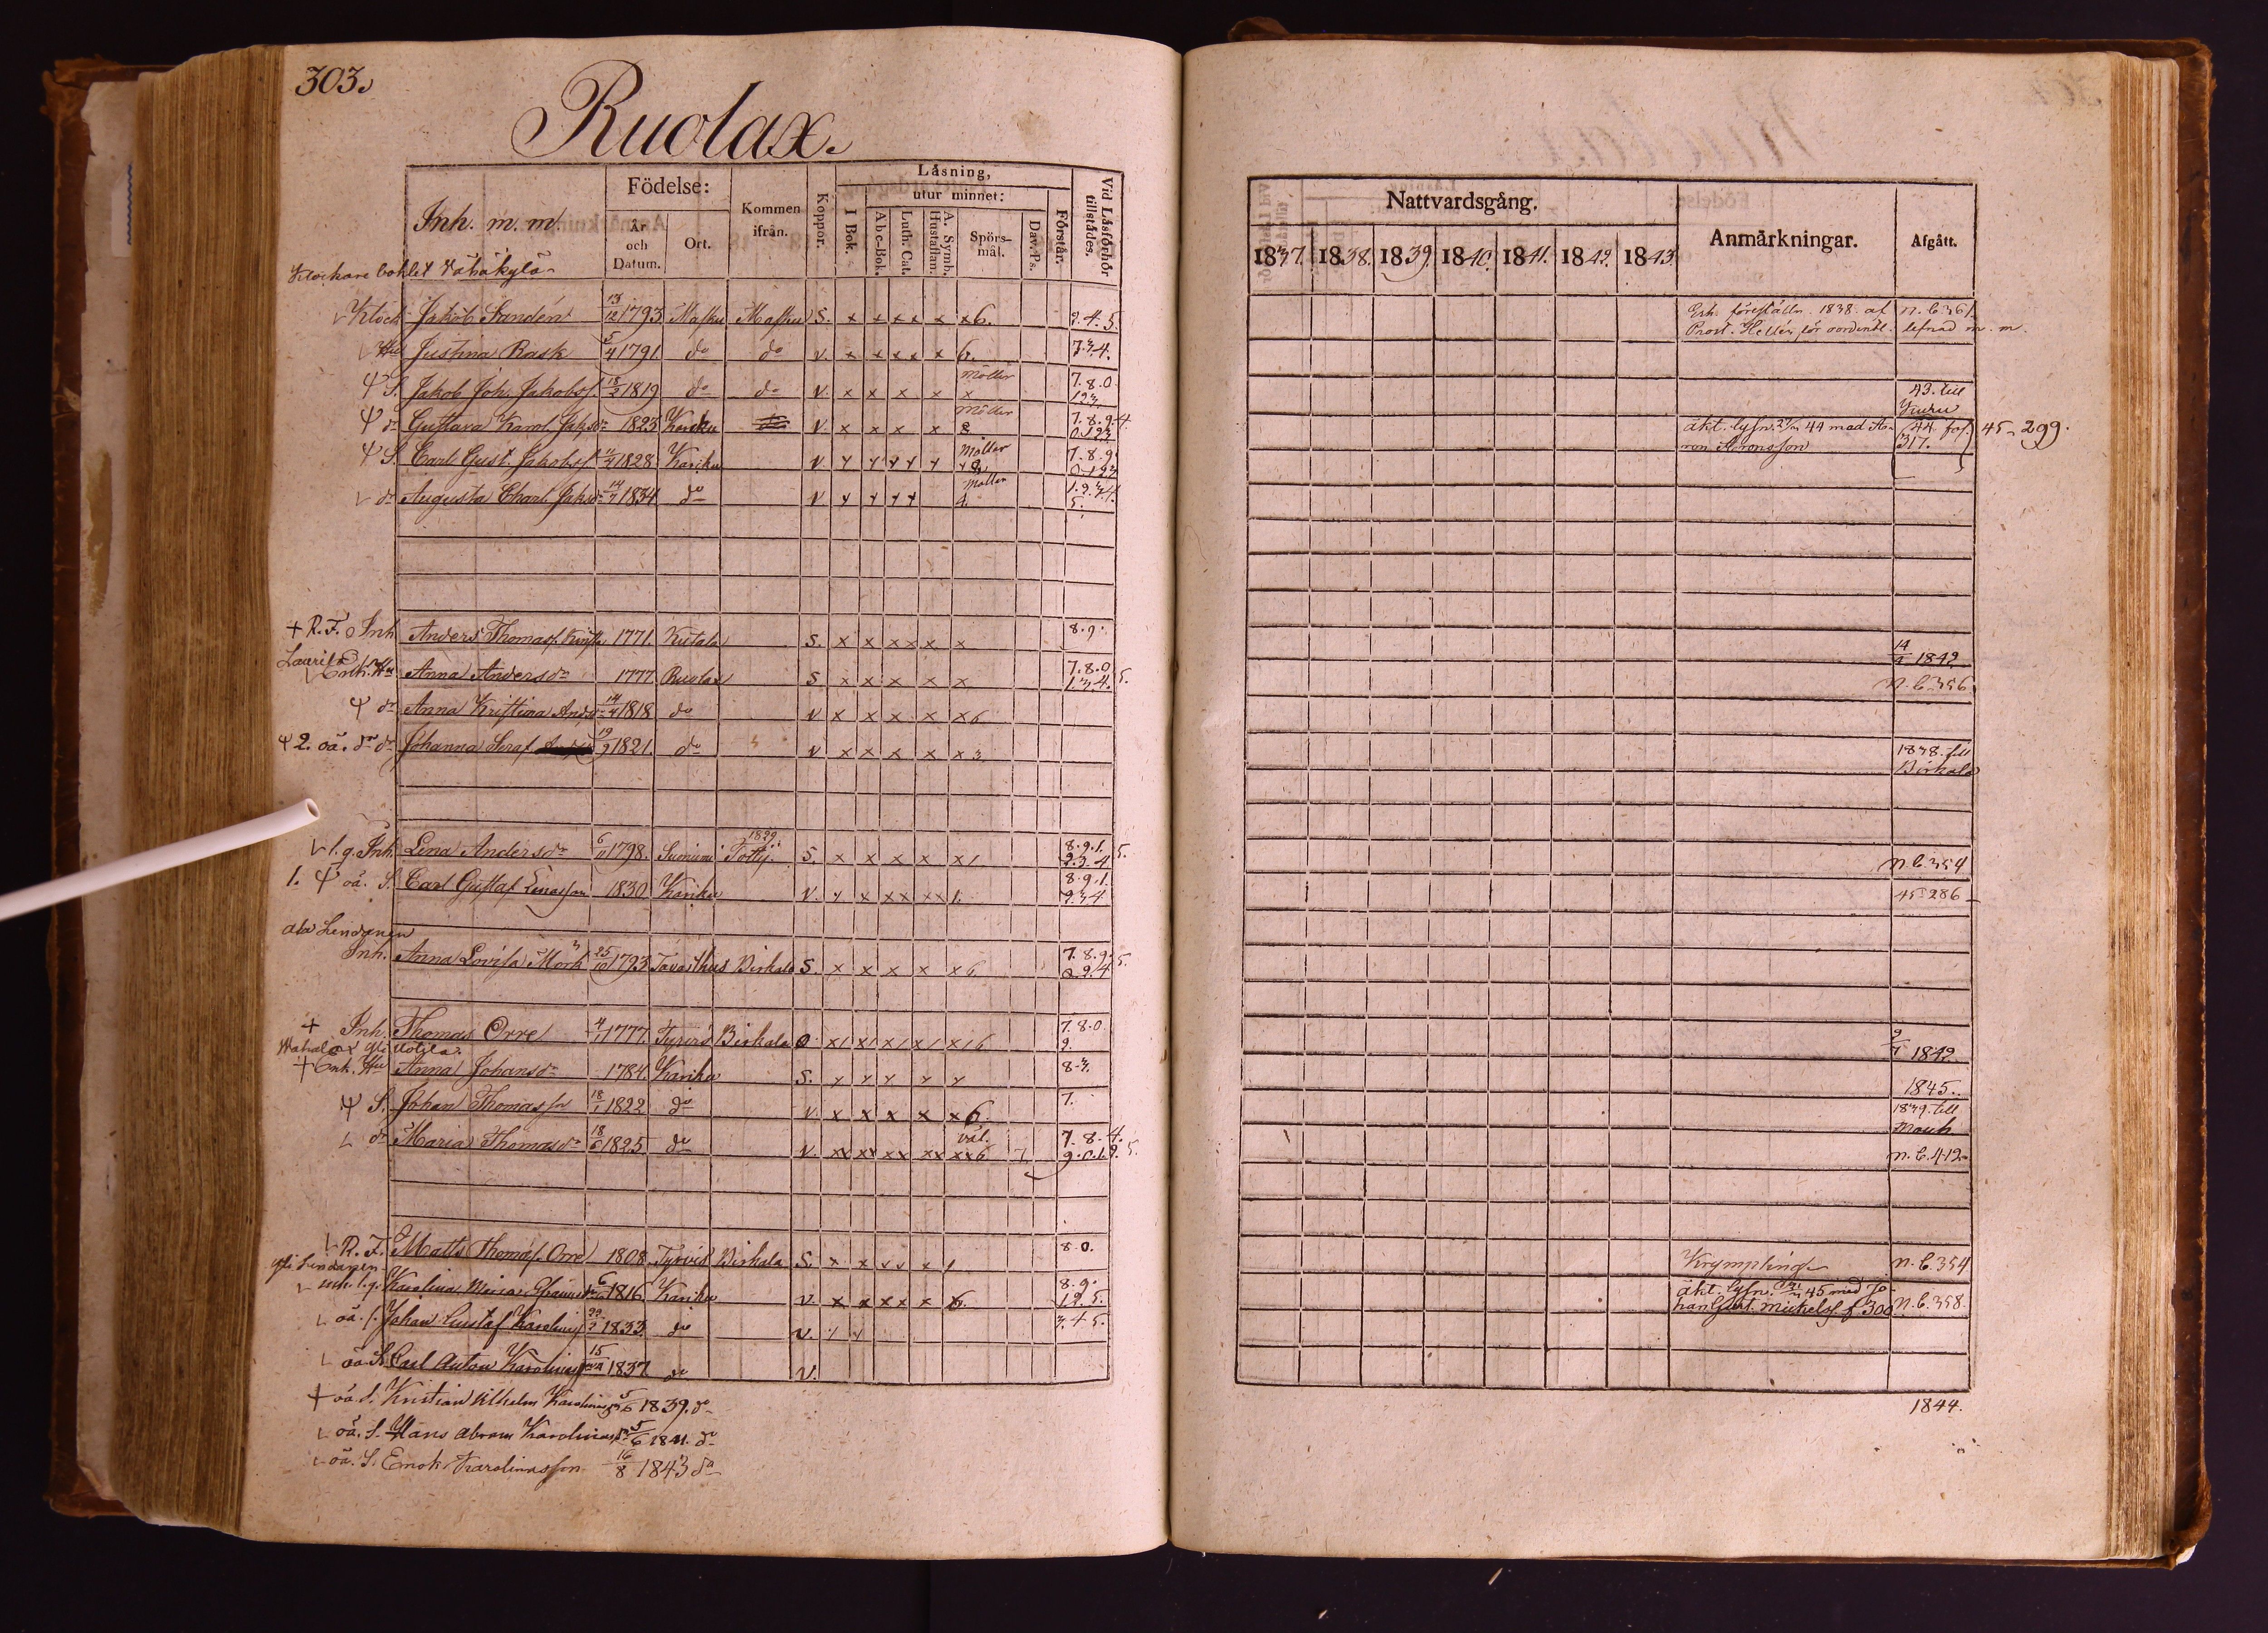 303.
Ruolax.
Inh. m. m.
Födelse:
År och Datum.
Ort.
Kommen ifrån.
Koppor.
Läsning,
I Bok.
utur minnet:
Abc-Bok.
Luth. Cat.
A. Symb. Hustaflan.
Spörsmål.
Dav. Ps.
Förstår.
Vid Läsförhör tillstädes.
Klockare bohlet
Klock. Jakob Sandén 13/12 1793 Masku Masku S. x x x x x x 6. 2.4.5.
Hu Justina Rask 5/4 1791. do do V. x x x x x 6. 7.3.4.
S. Jakob Joh. Jakobss. 18/2 1819 do do V. x x x x x x Möller 7.8.0 123.
dr Gustava Karol. Jaksdr 1823 V. x x x x Möller 7.8.9.4 0.123
S. Carl Gust. Jakobss. 1828 Kariku V. Möller 7.8.9 0.123
dr Augusta Charl. Jaksdr 14/7 1834 do V. Möller 4. 1.2.3.4. 5.
+ R. F. o Inh. Anders Thomass. 1771. Kutala S. x x x x x x 8.9.
Laurila Enk. Hu Anna Andersdr 1777. Ruolax S. x x x x x 7.8.0 1.3.4. 5.
dr Anna Kristina Andsdr 14/4 1818 do V. x x x x x 6
2. oä. dr dr Johanna Seraf. 19/9 1821. do V. x x x x x 3.
l. g. Inh. Lena Andersdr 6/11 1798. Suoniemi 1829. S. x x x x x 1. 8.9.1. 2.3.4 5.
1. oä. S. Carl Gustaf Lenasson 1830 Kariku V. 1. 8.9.1. 2.3.4
Ala Lendanen
Inh. Anna Lovisa Mörk 25/10 1793 Tavasthus Birkala S. x x x x x 6 7.8.9. 0.2.4 5.
+ Inh. Thomas Orre 4/1 1777. Tyrvis Birkala 6 7.8.0. 2.
+ Enk. Hu Anna Johansdr 1784. Kariku S. 8.3.
S. Johan Thomasson 18/1 1822 do V. x x x x x 6. 7.
dr Maria Thomasdr 18/6 1825 do V. xx xx xx xx xx 6 väl. 7.8.4. 9.0.1.2. 5.
R. F. Matts Thomass. Orre 1808. Tyrvis Birkala S. 8.0.
Yli Lendanen
inh. l. g. Karolina Maria 6/ 1816 Kariku V. x x x x x 6. 8.9. 12.5.
oä. S. Johan Gustaf Karolinas. 29/ 1833. do V. 3.4.5.
oä. S. Carl Anton Karolinas. 15/ 1837. do V.
+ oä. S. Kristian Vilhelm Karolinas. 5/6 1839. do
oä. S. Hans Abram Karolinas. 5/6 1841. do
oä. S. Enok Karolinasson 16/8 1843 do
Nattvardsgång.
1837. 1838. 1839. 1840. 1841. 1842. 1843.
Anmärkningar.
Afgått.
Erh. föreställn. 1838. af n. b. 361.
Prost. Hellén för oordentl. lefnad m. m.
43. till
Kuru
äkt. lysn. 44 med Aa- 44 fol. 45-299.
ron Aronsson 317.
14/4 1842
n. b. 356
1838. till
Birkala
n. b. 354
45-286
2/1 1842
1845.
1839. till
Mouh.
n. b. 412.
Krympling n. b. 354
äkt. lysn. 45 med Jo-
han Gust. Mickelss. f. 300 n. b. 358.
1844.